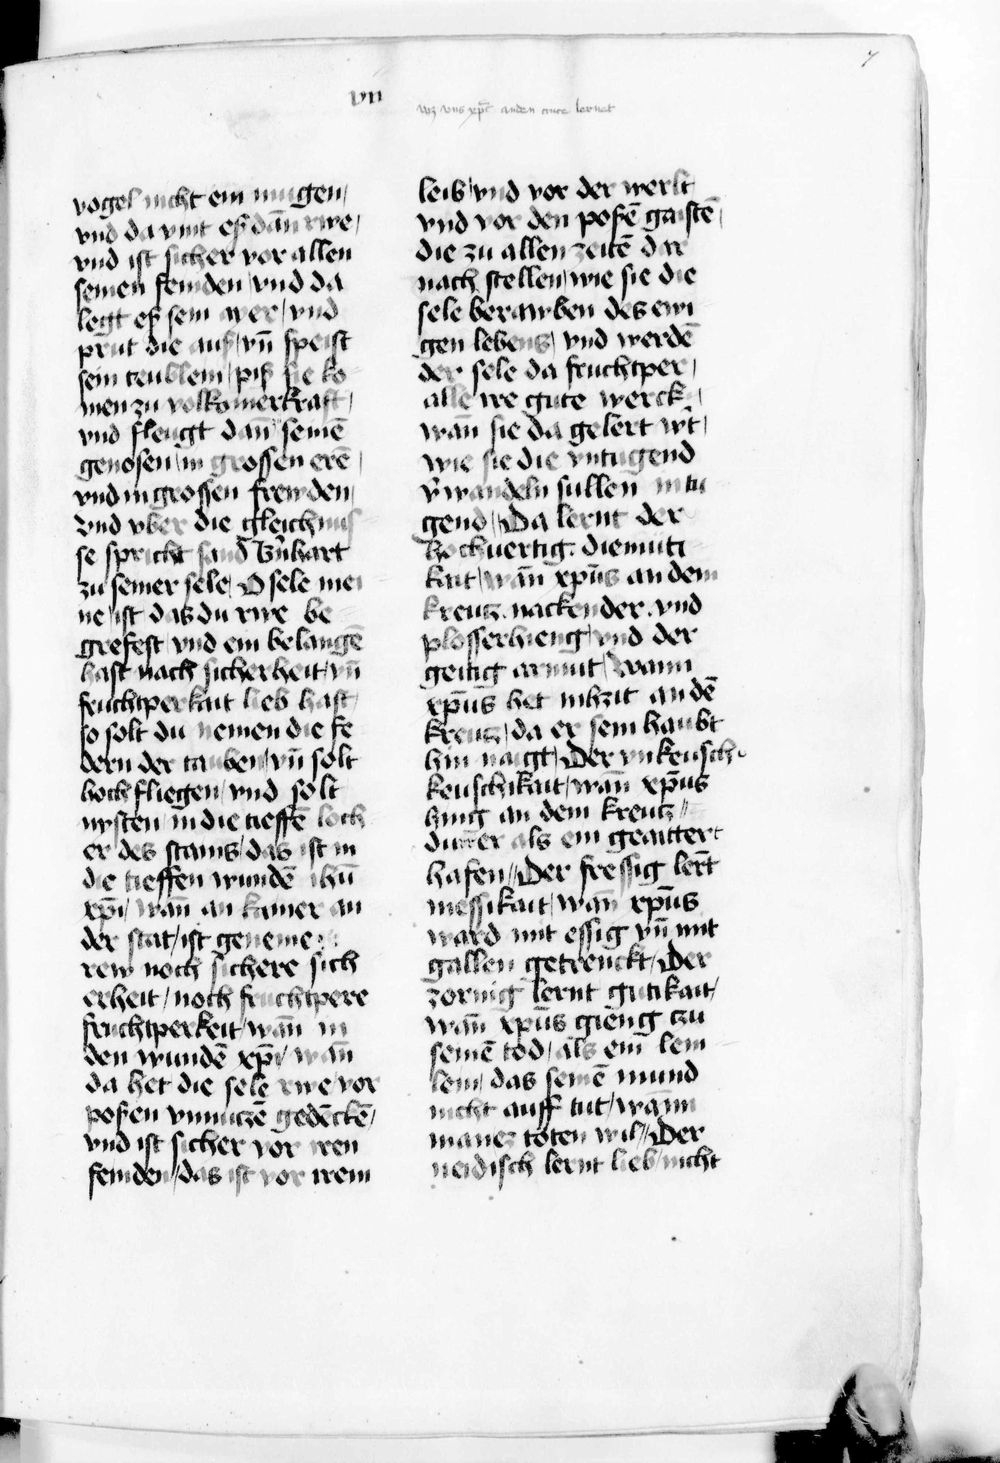 7
vii
wz vns xp̄c an den cruce lernet
vogel nicht ein mugen /
vnd da vint eſ dān rwe /
vnd ist sicher vor allen
seinen feinden / vnd da
legt eſ sein ayer / vnd
prut die auſ / vn̄ speist
sein teublein / piſ sie ko
men zu volkōmer kraft /
vnd fleugt dan̄ seinē
genosen / in grossen erē /
vnd in grossen frewden /
Vnd vber die gleichnus
se spricht sand v̄nhart
zu seiner sele / O sele mei
ne / ist das du rwe be
grefest / vnd ein belangē
hast nach sicherheit / vn̄
fruchtperkait lieb hast /
so solt du nemen die fe
dern der tauben / vn̄ solt
hoch fliegen / vnd solt
nysten / in die tieffē loch
er des stains / das ist in
die tieffen wundē ihū
xp̄i / wan̄ an kainer an
der stat / ist geneme
rew noch sichere sich
erheit / noch fruchtpere
fruchtperkeit / wan̄ in
den wundē xp̄i / wan̄
da het die sele rwe / vor
poſen vnnutzē gedēckē /
vnd ist sicher vor iren
feinden / das ist vor irem
leib / vnd vor der werlt
vnd vor den poſē gaistē /
die zu allen zeitē dar
nach stellen / wie sie die
sele berawben des ewi
gen lebens / vnd werdē
der sele da fruchtper /
alle ire gute werck /
wan̄ sie da gelert wt̄ /
wie sie die vntugend
v̄wandeln sullen in tu
gend / Da lernt der
hochuertig diemuti
kait / wan̄ xp̄us an dem
kreutz . nackender . vnd
plosser hieng / vnd der
geitig armut / Wann
xp̄us het nihzit an dē
kreutz / da er sein haubt
hin naigt / Der vnkeusch
keuschikait / wan̄ xp̄us
hing an dem kreutz //
durrer als ein geaitert
hafen // Der fressig lert̄
messikait / wan̄ xp̄us
ward mit essig vn̄ mit
gallen getrenckt / Der
zornig lernt gutikait /
wan̄ xp̄us gieng czu
seinē tod / als ein̄ lem
lein / das seinē mund
nicht auff tut / wan̄n
manez toten wil // Der
neidisch lernt lieb / nicht